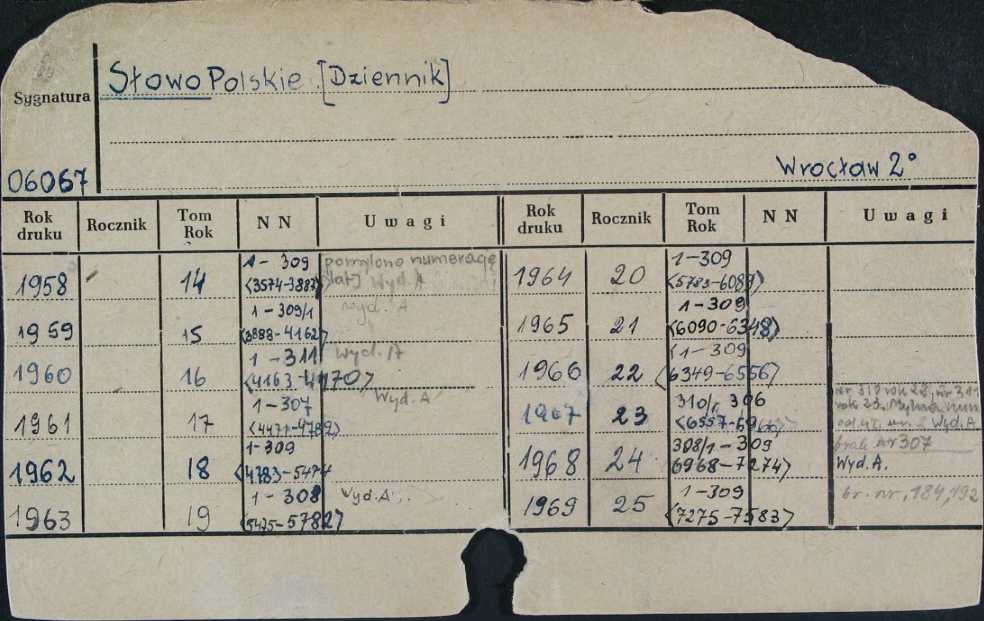 Słowo Polskie. [Dziennik]
Sygnatura
06067
Wrocław 2°
Rok druku Rocznik Tom Rok N N Uwagi Rok druku Rocznik Tom Rok N N Uwagi
1958 14 1-309 pomylono numerację
<3574-3887> Wyd. A
1959 15 1-309/1 wyd. A
<3888-4162>
1960 16 1-311 Wyd. A
<4163-4470>
1961 17 1-307 Wyd. A
<4471-4782>
1962 18 1-309
<4783-5474
1963 19 1-308 Wyd. A
<5475-5782>
1964 20 1-309
<5783-6089>
1965 21 1-309
<6090-6348>
1966 22 <1-309
<6349-6556>
1967 23 310/1, 306
<6557-6966>
Wyd. A
1968 24 308/1-309 brak nr 307
6968-7274> Wyd. A.
1969 25 1-309 br. nr. 184, 192
<7275-7583>